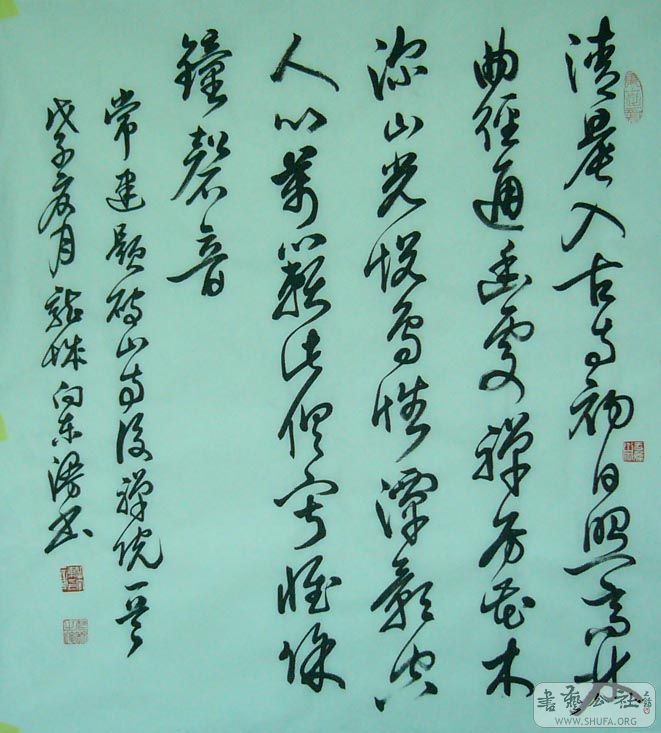 清晨入古寺初日照高林
曲径通幽处禅房花木
深山光悦鸟性潭影空
人心万籁此俱寂惟余
钟磬音
常建题破山寺后禅院一首
戊子夏月 向东 书
書藝公社
WWW.SHUFA.ORG